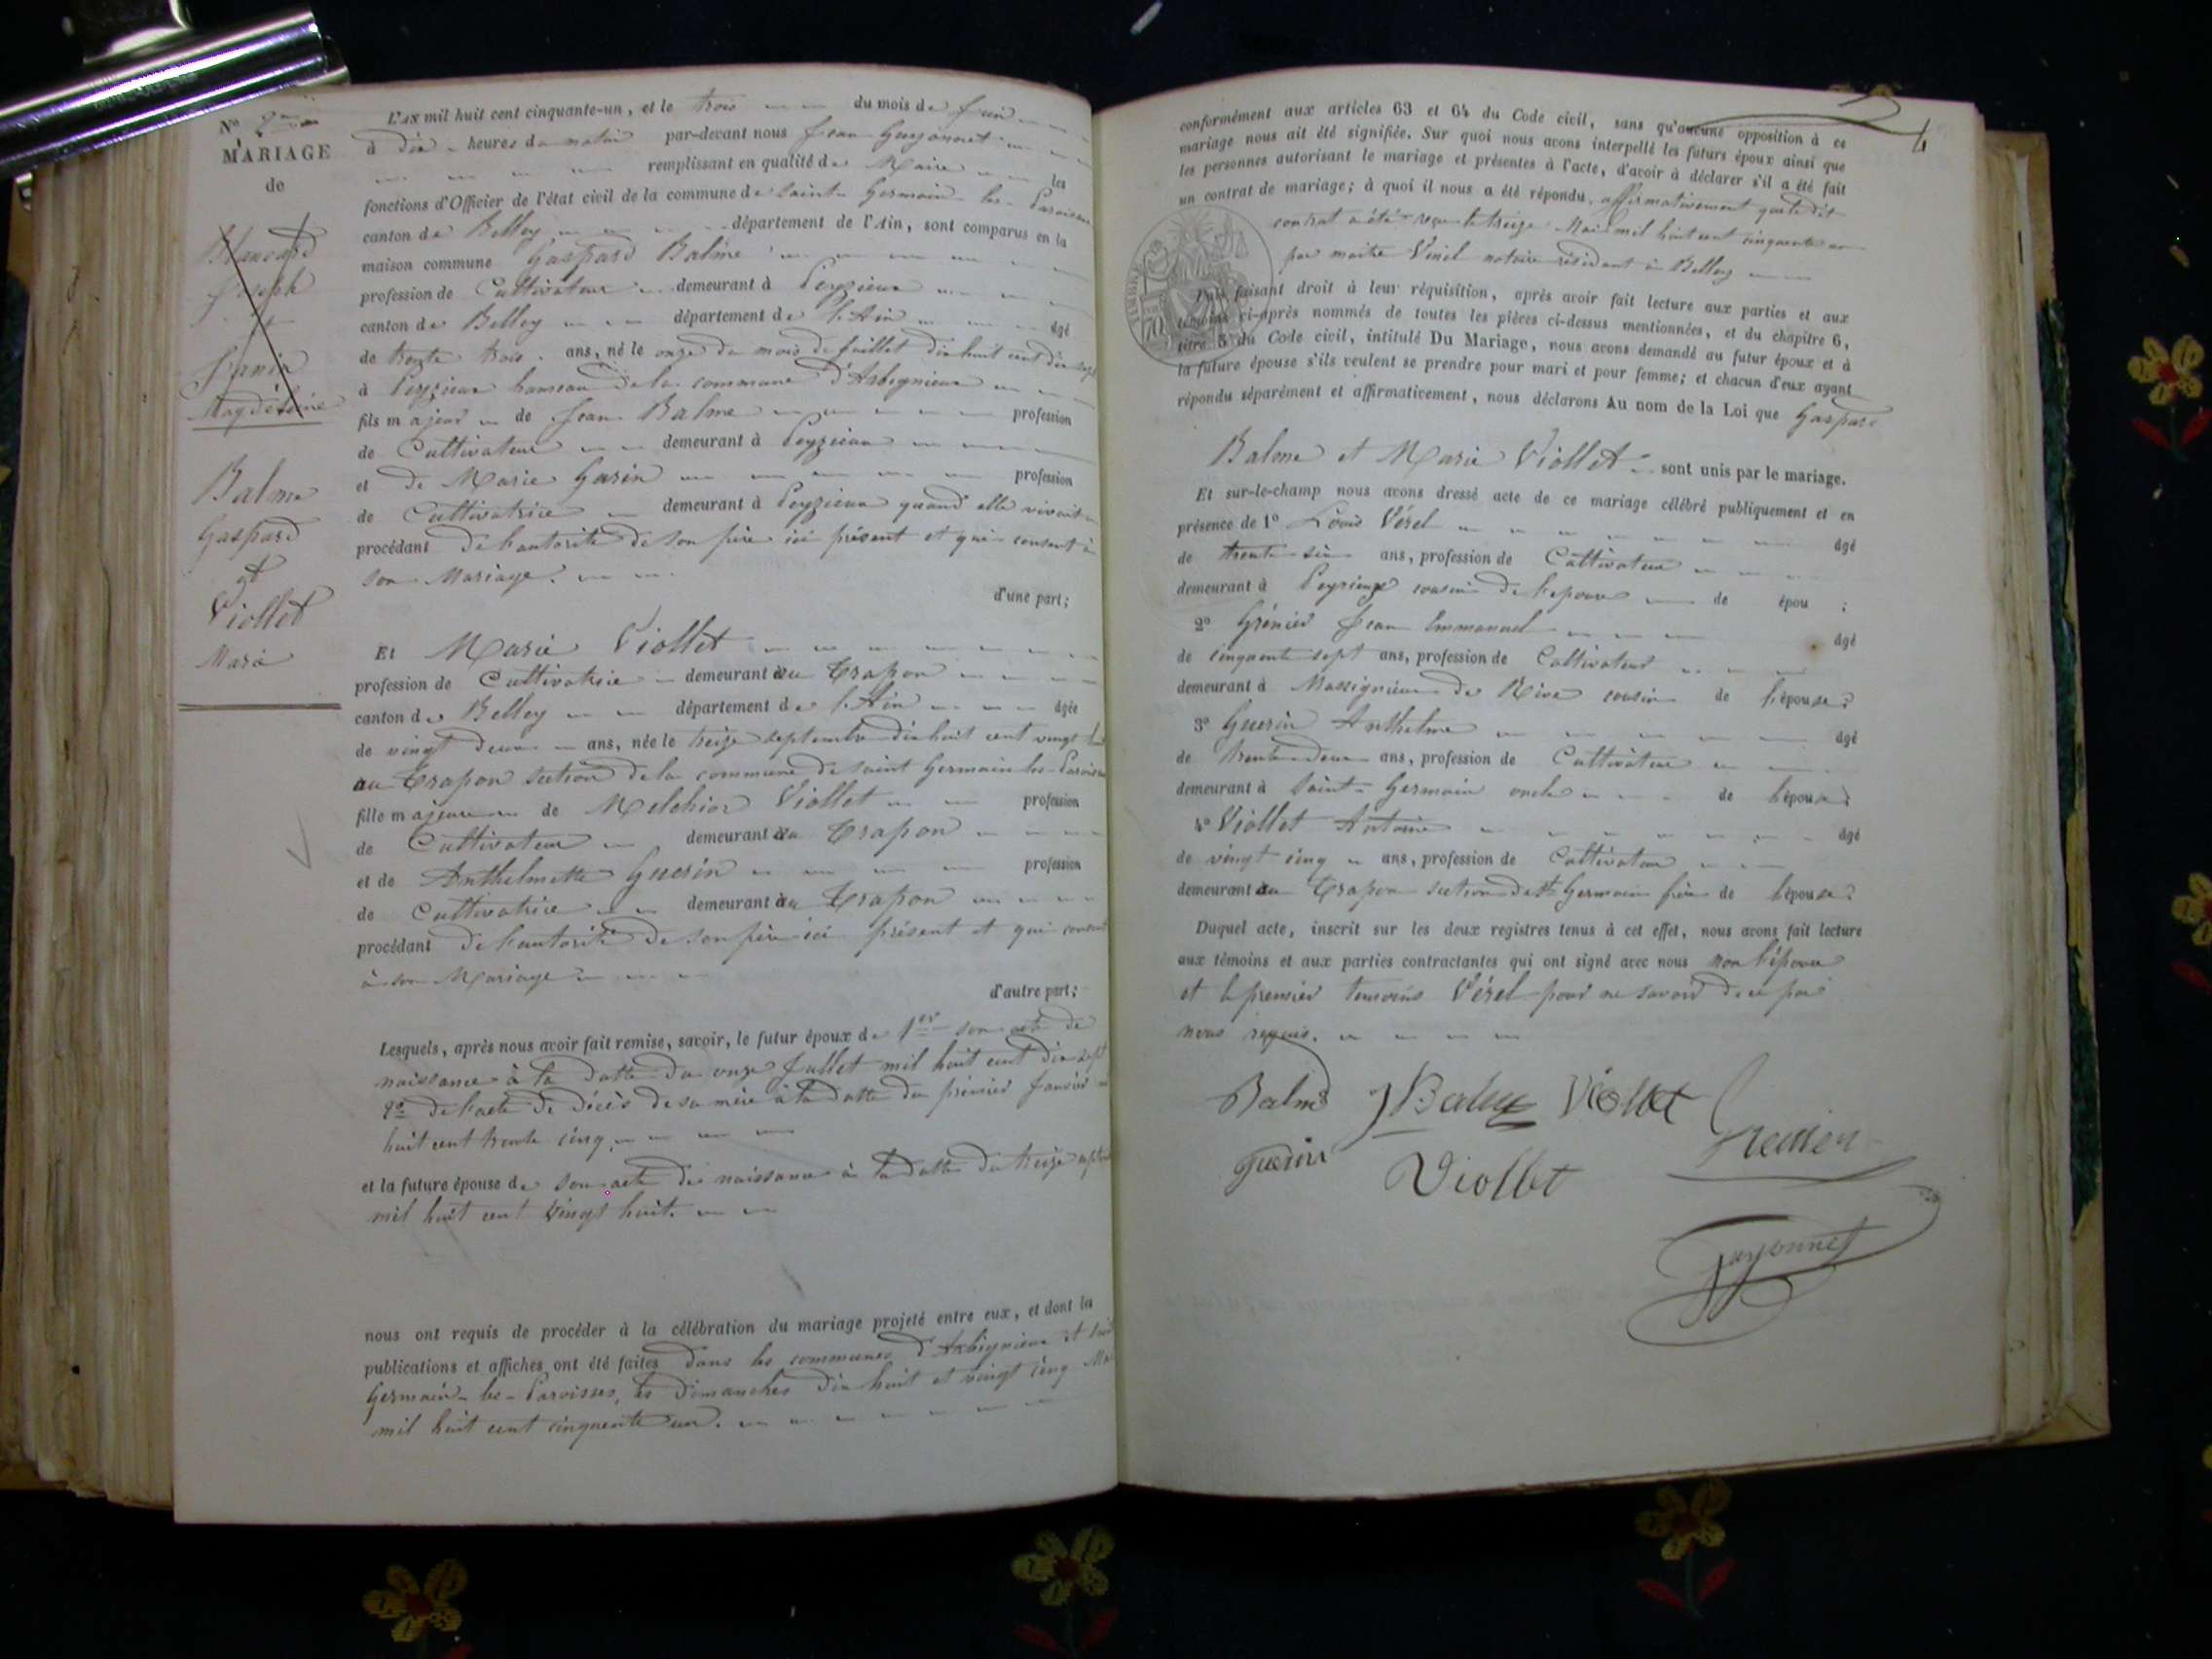 Nº 2me
MARIAGE
de
Blancard
Joseph
et
Janin
Magdeleine
Balme
Gaspard
et
Viollet
Marie
L'AN mil huit cent cinquante-un, et le trois du mois de juin
à dix heures du matin par-devant nous Jean Guyonnet
remplissant en qualité de Maire les
fonctions d'Officier de l'état civil de la commune de Saint-Germain-les-Paroisses
canton de Belley département de l'Ain, sont comparus en la
maison commune Gaspard Balme
profession de Cultivateur demeurant à Peyzieux
canton de Belley département de l'Ain âgé
de trente trois ans, né le onze du mois de juillet dix huit cent dix sept
à Peyzieux hameau de la commune d'Arbignieux
fils majeur de Jean Balme profession
de Cultivateur demeurant à Peyzieux
et de Marie Garin profession
de Cultivatrice demeurant à Peyzieux quand elle vivait
procédant de l'autorité de son père ici présent et qui consent à
son Mariage.
d'une part;
Et Marie Viollet
profession de Cultivatrice demeurant au Crapon
canton de Belley département de l'Ain âgée
de vingt deux ans, née le treize septembre dix huit cent vingt
au Crapon section de la commune de saint Germain les Paroisses
fille majeure de Melchior Viollet profession
de Cultivateur demeurant au Crapon
et de Anthelmette Guerin profession
de Cultivatrice demeurant au Crapon
procédant de l'autorité de son père ici présent et qui consent
à son Mariage
d'autre part;
Lesquels, après nous avoir fait remise, savoir, le futur époux de 1er son acte de
naissance à la datte du onze Juillet mil huit cent dix sept
2º de l'acte de décès de sa mère à la datte du premier Janvier
huit cent trente cinq.
et la future épouse de son acte de naissance à la datte du treize septembre
mil huit cent vingt huit.
nous ont requis de procéder à la célébration du mariage projeté entre eux, et dont les
publications et affiches ont été faites dans les communes d'Arbignieux et Saint
Germain-les-Paroisses, les dimanches dix huit et vingt cinq Mai
mil huit cent cinquante un.
4
conformément aux articles 63 et 64 du Code civil, sans qu'aucune opposition à ce
mariage nous ait été signifiée. Sur quoi nous avons interpellé les futurs époux ainsi que
les personnes autorisant le mariage et présentes à l'acte, d'avoir à déclarer s'il a été fait
un contrat de mariage; à quoi il nous a été répondu, affirmativement que le dit
contrat a été reçu le treize Mai mil huit cent cinquante un
par maitre Vinil notaire résidant à Belley
TIMBRE
70
Puis faisant droit à leur réquisition, après avoir fait lecture aux parties et aux
témoins ci-après nommés de toutes les pièces ci-dessus mentionnées, et du chapitre 6,
titre 5 du Code civil, intitulé Du Mariage, nous avons demandé au futur époux et à
la future épouse s'ils veulent se prendre pour mari et pour femme; et chacun d'eux ayant
répondu séparément et affirmativement, nous déclarons Au nom de la Loi que Gaspard
Balme et Marie Viollet sont unis par le mariage.
Et sur-le-champ nous avons dressé acte de ce mariage célébré publiquement et en
présence de 1º Louis Vérel âgé
de trente six ans, profession de Cultivateur
demeurant à Peyzieux cousin de l'epoux de épou ;
2º Grénier Jean Emmanuel âgé
de cinquante sept ans, profession de Cultivateur
demeurant à Massignieux de Rive cousin de l'épouse;
3º Guerin Anthelme âgé
de trente deux ans, profession de Cultivateur
demeurant à Saint-Germain oncle de l'épouse;
4º Viollet Antoine âgé
de vingt cinq ans, profession de Cultivateur
demeurant au Crapon section de St Germain frère de l'épouse;
Duquel acte, inscrit sur les deux registres tenus à cet effet, nous avons fait lecture
aux témoins et aux parties contractantes qui ont signé avec nous non l'épouse
et le premier temoins Vérel pour ne savoir de ce par
nous requis.
Balme J Balme Viollet
Grenier
Guerin Viollet
Guyonnet